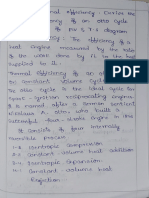 thermal efficiency - Derive the
efficiency of an otto cycle
of PV & T-S diagram
efficiency: the efficiency of a
heat engine measured by the ratio
of the work done by it to the heat
supplied to it.
Thermal efficiency of an otto cycle
or constant volume cycle
The otto cycle is the ideal cycle for
spark-ignition reciprocating engines.
It is named after a German scientist
Nicolaus A. Otto, who built a
successful four-stroke engine in
It consists of four internally
reversible process
1-2 Isentropic compression
2-3 Constant volume heat addition
3-4 Isentropic Expansion
4-1 Constant volume heat
Rejection